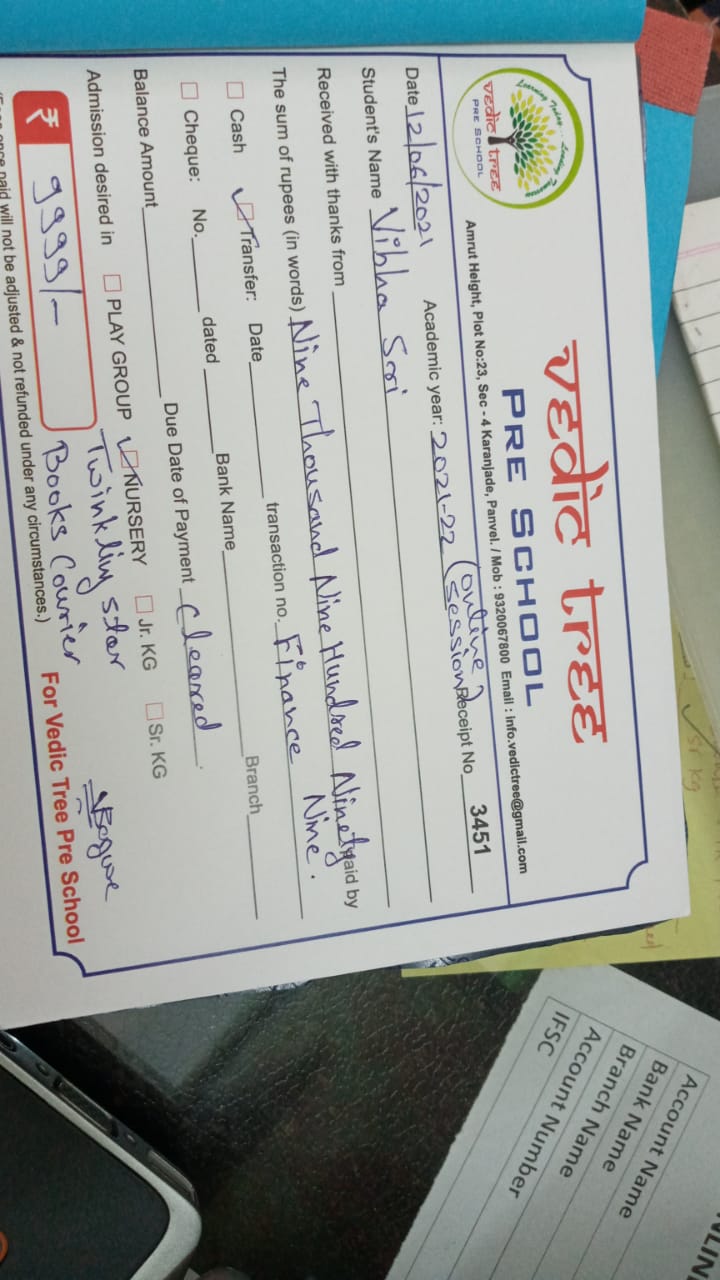 vedic tree
PRE SCHOOL
Learning Today... Leading Tomorrow
vedic tree
PRE SCHOOL
Amrut Height, Plot No:23, Sec - 4 Karanjade, Panvel. / Mob : 9320067800 Email : info.vedictree@gmail.com
Date 12/06/2021 Academic year: 2021-22 (online session) Receipt No 3451
Student's Name Vibha Sri
Received with thanks from
The sum of rupees (in words) Nine Thousand Nine Hundred Ninety Nine. paid by
Cash Transfer: Date transaction no. Finance
Cheque: No. dated Bank Name Branch
Balance Amount Due Date of Payment Cleared.
Admission desired in PLAY GROUP NURSERY Jr. KG Sr. KG
Twinkling star
₹ 9999/- Books Courier
For Vedic Tree Pre School
once paid will not be adjusted & not refunded under any circumstances.)
Account Name
Bank Name
Branch Name
Account Number
IFSC
Sr kg